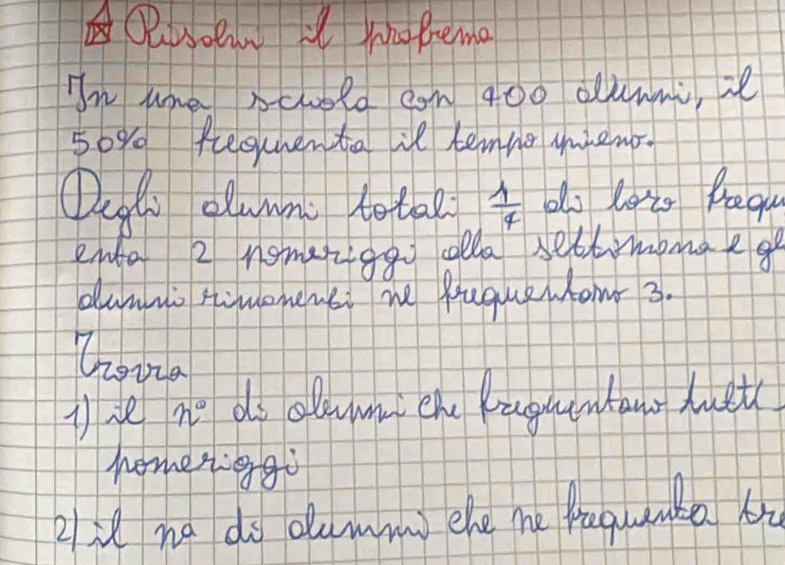 Risolvi il problema
In una scuola con 400 alunni, il
50% frequenta il tempo pieno.
Degli alunni totali 1/4 di loro frequ
enta 2 pomeriggi alla settimana e gl
alunni rimanenti ne frequentano 3.
Trova
1) il n° di alunni che frequentano tutti
pomeriggi
2) il n° di alunni che ne frequenta tre